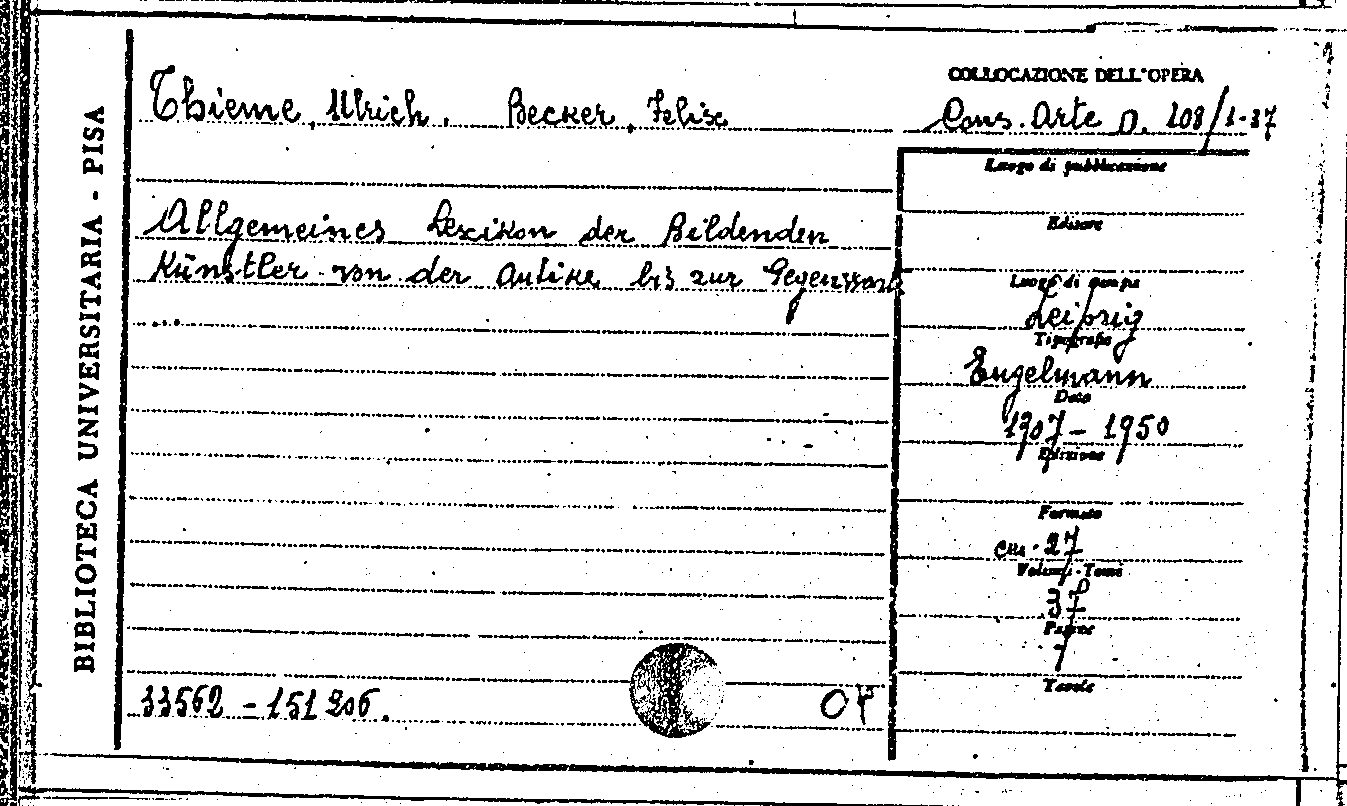 BIBLIOTECA UNIVERSITARIA - PISA
Thieme, Ulrich. Becker, Felix
COLLOCAZIONE DELL'OPERA
Cons. Arte D. 108/1-37
Luogo di pubblicazione
Allgemeines Lexikon der Bildenden
Künstler von der Antike bis zur Gegenwart
...
Editore
Luogo di stampa
Leipzig
Tipografo
Engelmann
Data
1907-1950
Edizione
Formato
cm. 27
Volumi-Tomi
37
Pagine
Tavole
33562 - 151206.